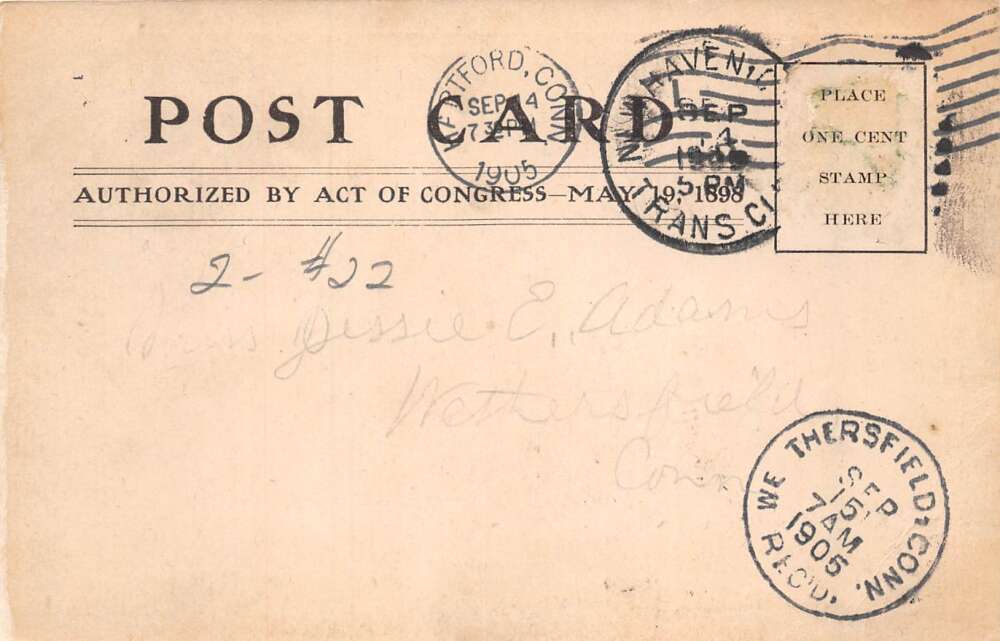 POST CARD
AUTHORIZED BY ACT OF CONGRESS—MAY 19, 1898
HARTFORD, CONN.
SEP 14
1905
NEW HAVEN, C
SEP
14
1905
5 PM
TRANS CL
PLACE
ONE CENT
STAMP
HERE
2- #22
Miss Jessie E. Adams
Wethersfield
Conn
WETHERSFIELD, CONN.
SEP
15
7 AM
1905
REC'D.